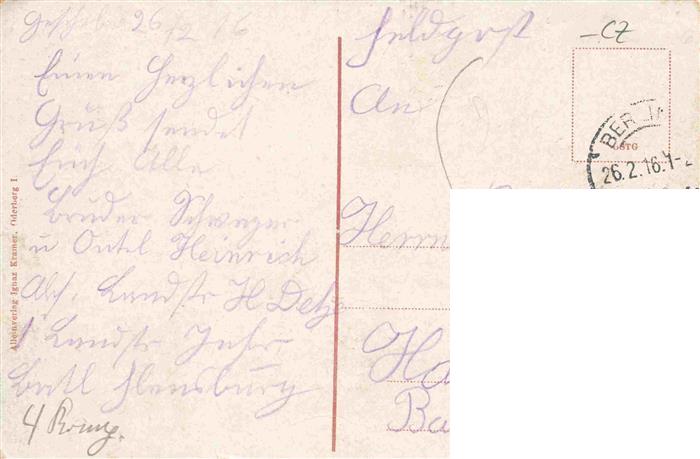 Gesch. 26/2 16
Einen Herzlichen
Gruß sendet
Euch Alle
Bruder Schwager
u Onkel Heinrich
Abs. Landst. H
Landst. Infr.
Batl Flensburg
4 Komp.
Alleinverlag Ignaz Kramer, Oderberg I
Feldpost
An
Herrn
Ha
Ba
-CZ
BERLIN
26.2.16.